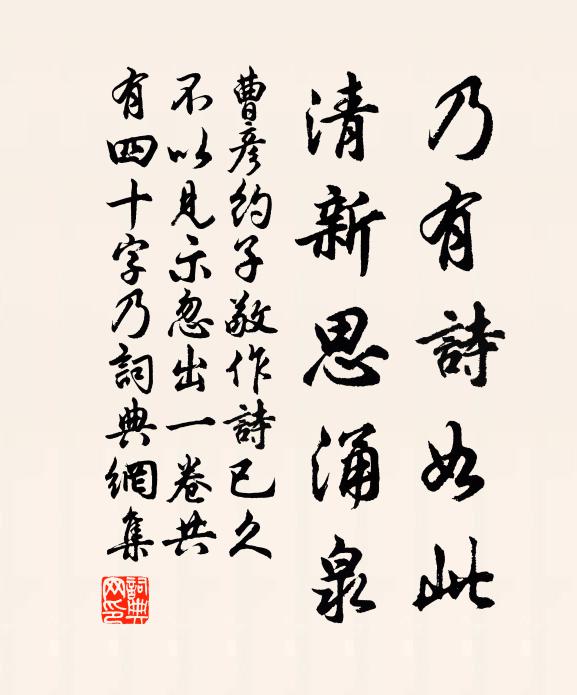 乃有詩如此
清新思涌泉
曹彦約子敬作詩已久
不以見示忽出一卷共
有四十字乃詞典網集
詞典网印